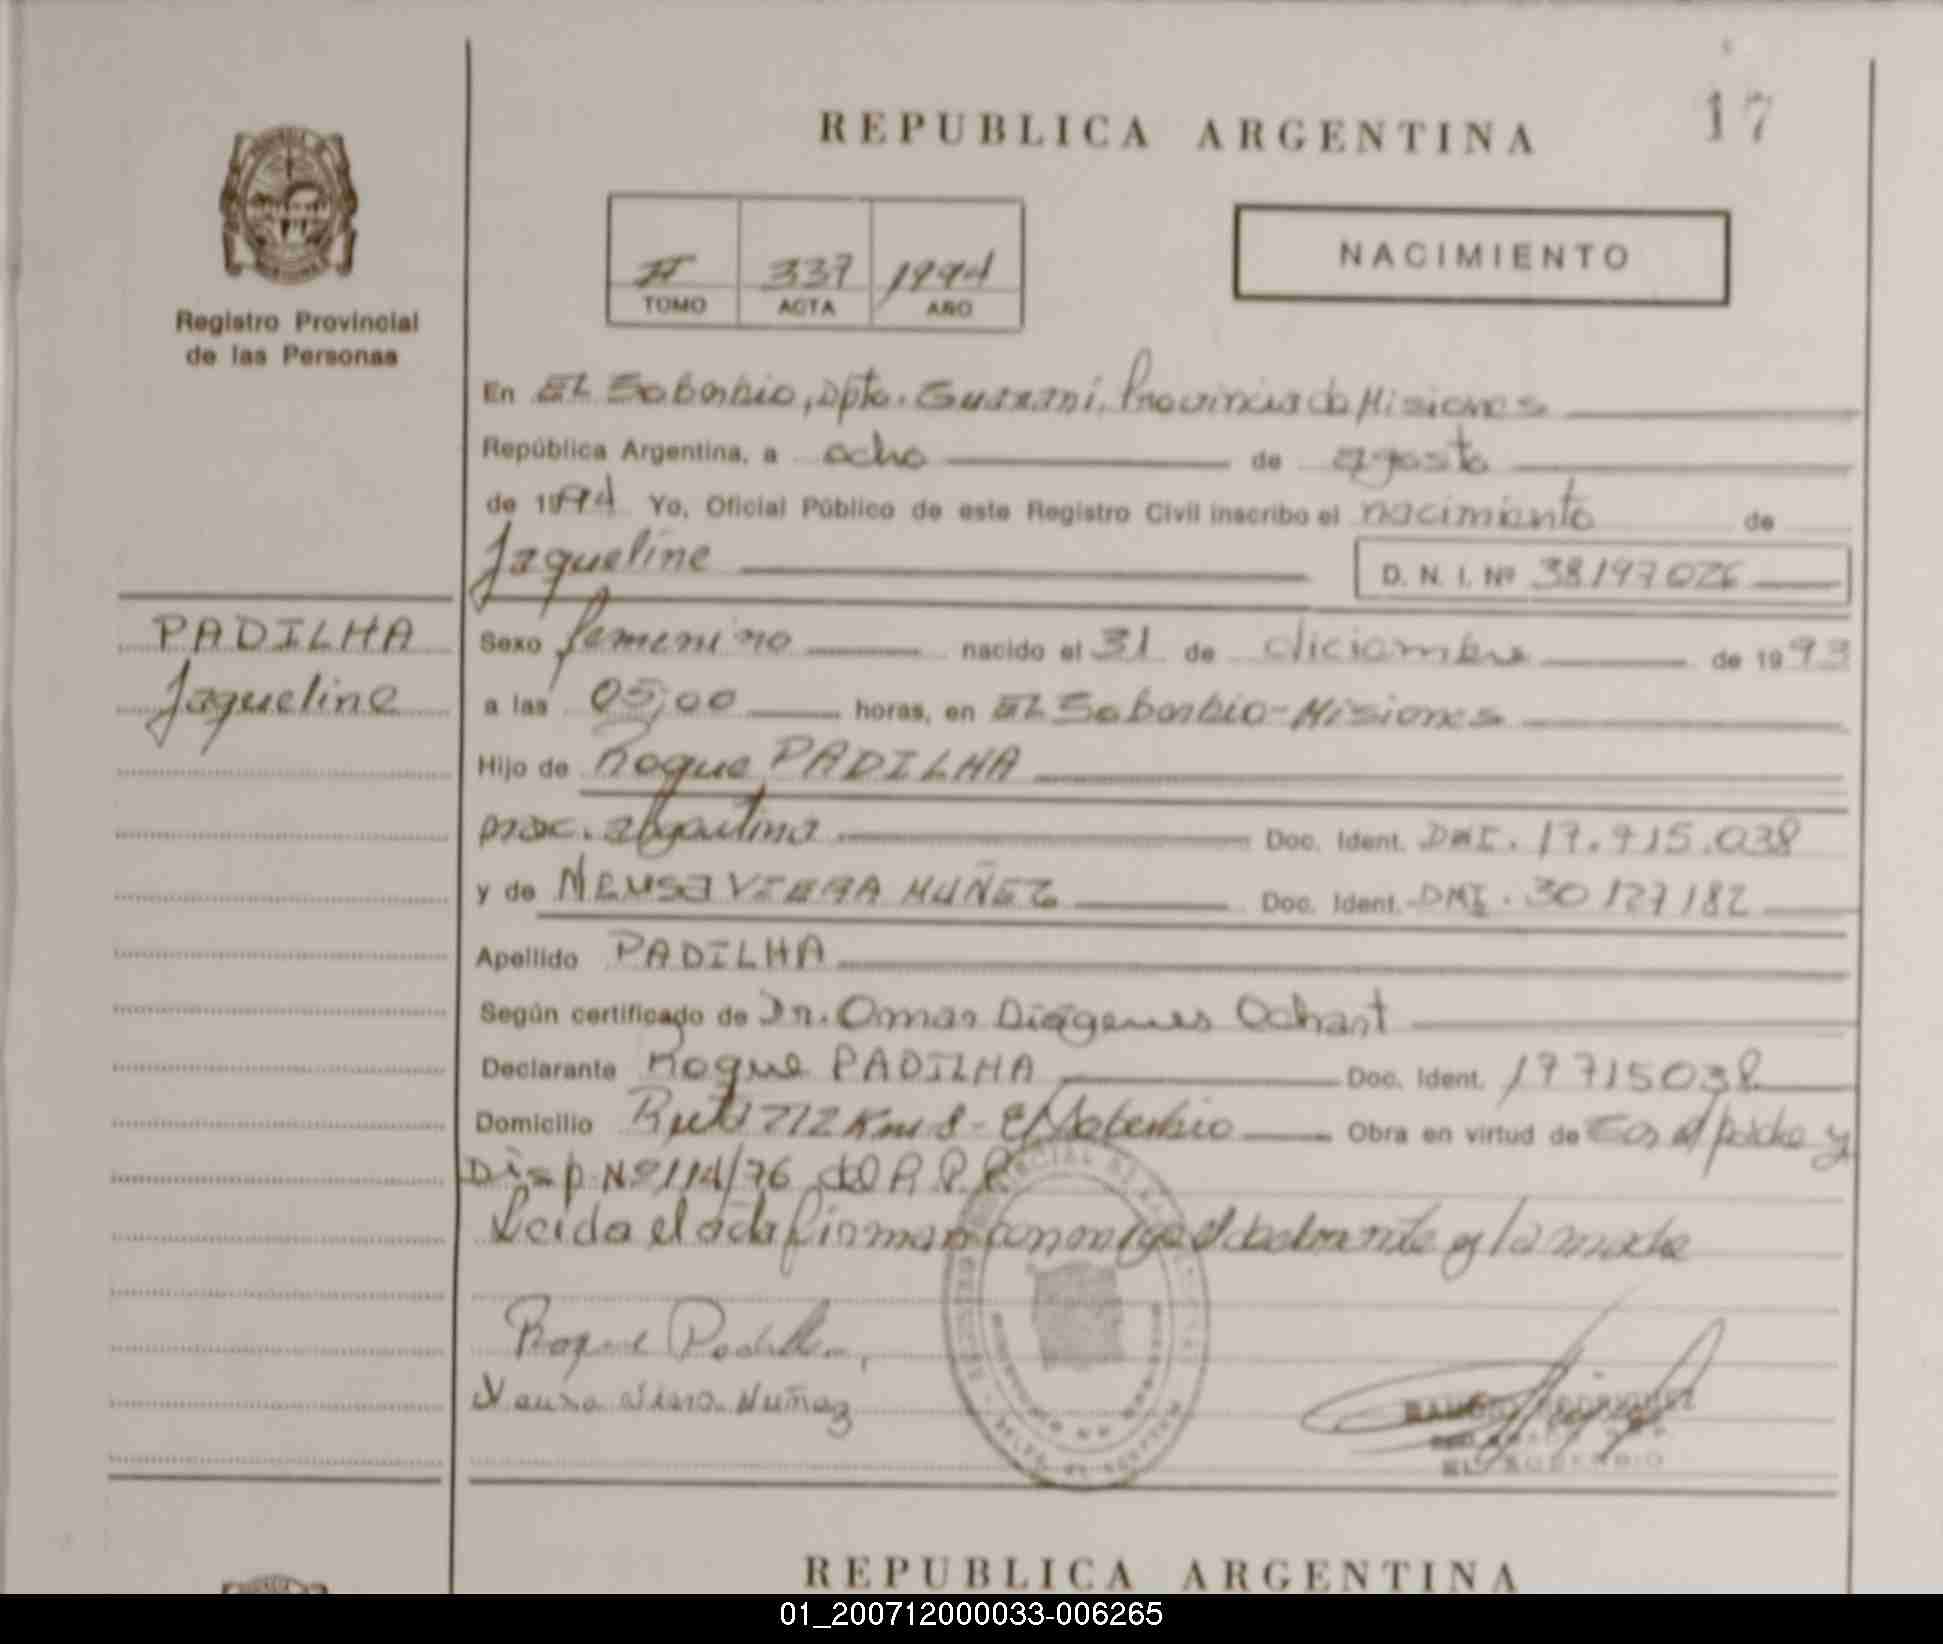 17
REPUBLICA ARGENTINA
NACIMIENTO
II 337 1994
TOMO ACTA AÑO
Registro Provincial
de las Personas
En EL Soberbio, Dpto. Guaraní, Provincia de Misiones
República Argentina, a ocho de agosto
de 1994 Yo, Oficial Público de este Registro Civil inscribo el nacimiento de
Jaqueline D. N. I. Nº 38197026
PADILHA
Jaqueline
Sexo femenino nacido el 31 de diciembre de 1993
a las 05,00 horas, en EL Soberbio-Misiones
Hijo de Roque PADILHA
nac. argentina Doc. Ident. DNI. 17.715.038
y de NEUSA VIERA MUÑEZ Doc. Ident. DNI. 30127182
Apellido PADILHA
Según certificado de Dr. Omar Diógenes
Declarante Roque PADILHA Doc. Ident. 17715038
Domicilio Ruta 212 Km 8 - El Soberbio Obra en virtud de y
Disp. Nº 114/76 del R.P.P.
Leida el acta firman conmigo el declarante y la madre
Roque Padilha
Neusa Viera Nuñez
EL SOBERBIO
REPUBLICA ARGENTINA
01_200712000033-006265